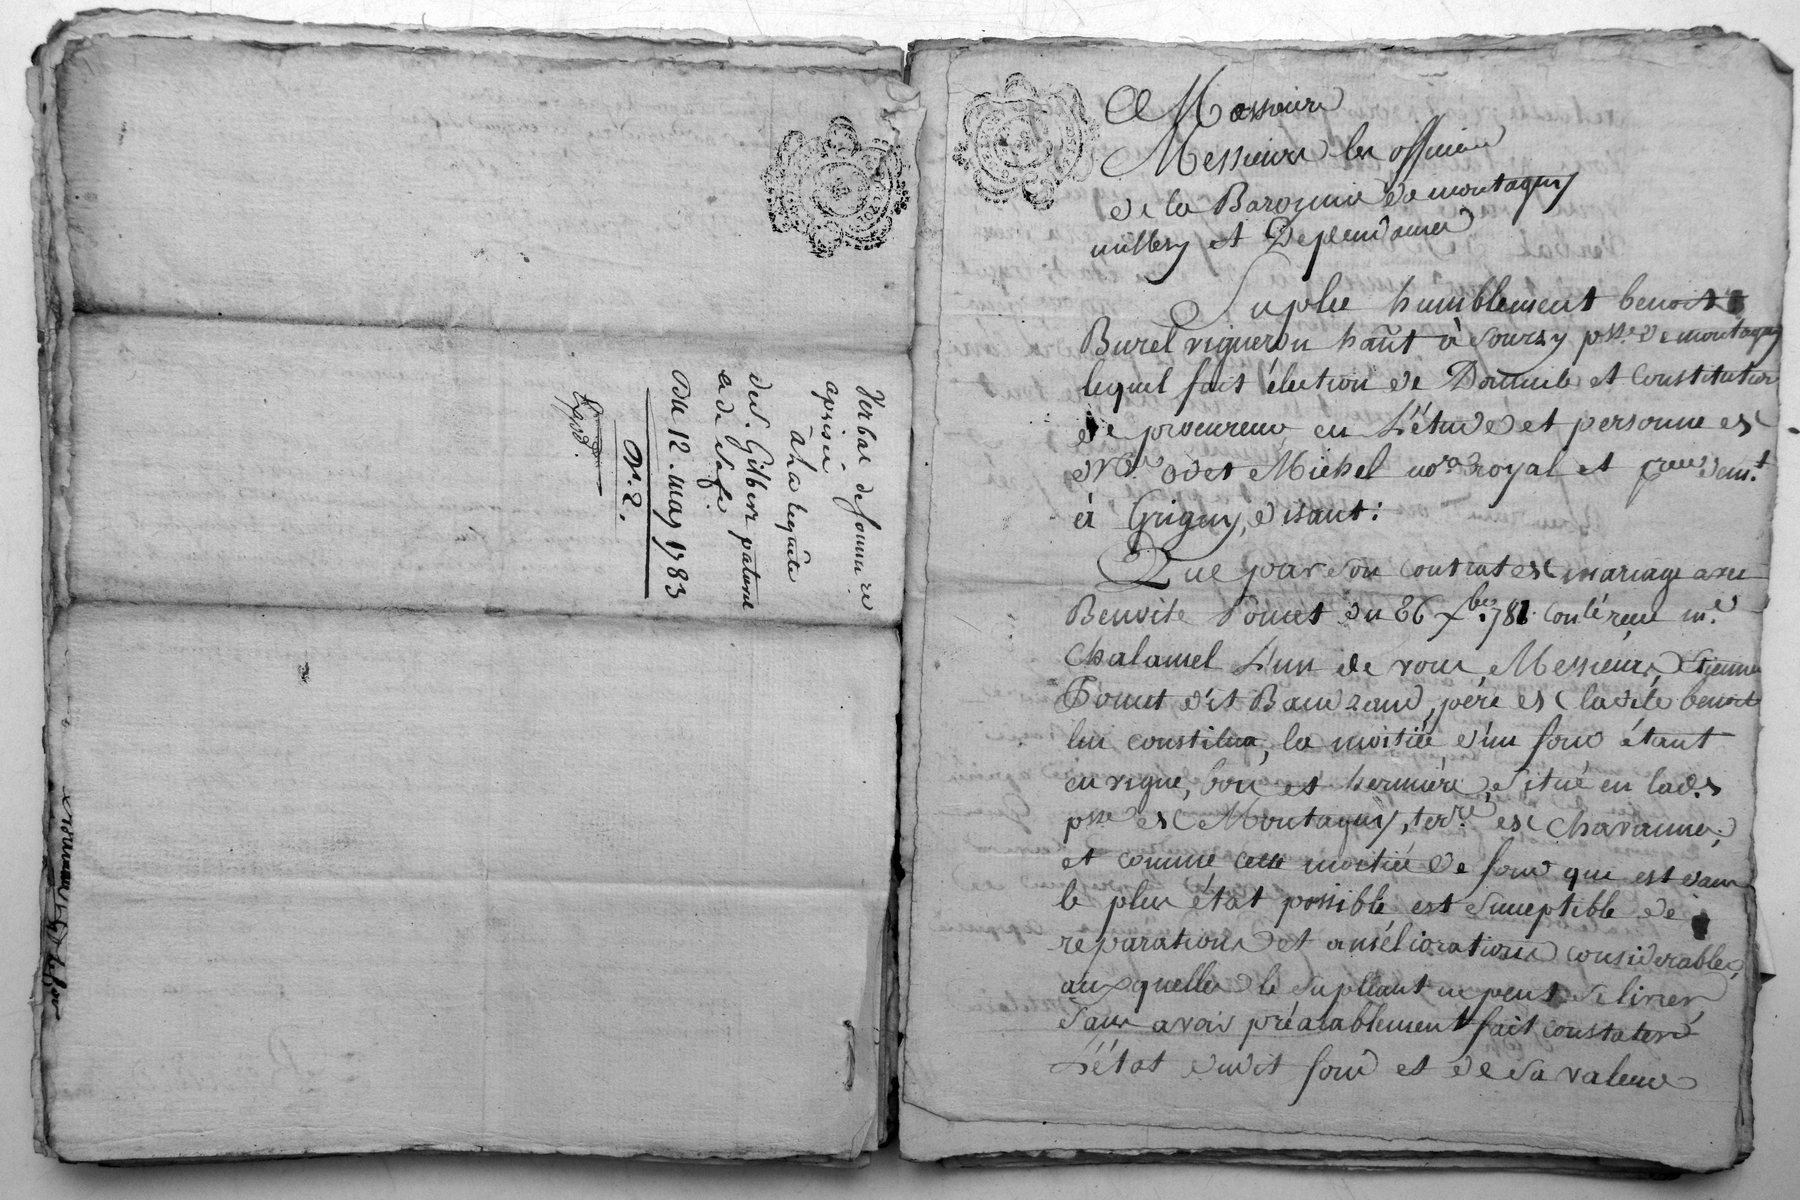 Verbal de somm
à la requête
de S. Gilbert
et de sa fe
Du 12. may 1783
N. 2.
A Messieurs
Messieurs les officiers
de la Baronnie de montagny
millery et Dependances
Suplie humblement benoit
Burel vigneron hañt à Sourzy psse. de montagny
lequel fait élection de Domicile et Constitution
de procureur en L'étude et personne de
Me. odet Michel no.re royal et
à Grigny, disant:
Que par Son Contrat de mariage avec
Benoite Poncet du 26 xbre. 1781. Conté reçu me.
Chalamel L'un de vous, Messieurs, Etienne
Poncet dit Bauzand, père de ladite benoite
lui constitua, la moitiée d'un fond étant
en vigne, bois et hermière, Situé en lad.
psse de Montagny, ter.re de Chavannes;
et comme cette moitiée de fond que est dans
le plus état possible est Susceptible de
réparations et améliorations considerables,
auxquelles le Supliant ne peut se livrer
Sans avoir préalablement fait constater
L'état dudit fond et de Sa valeur